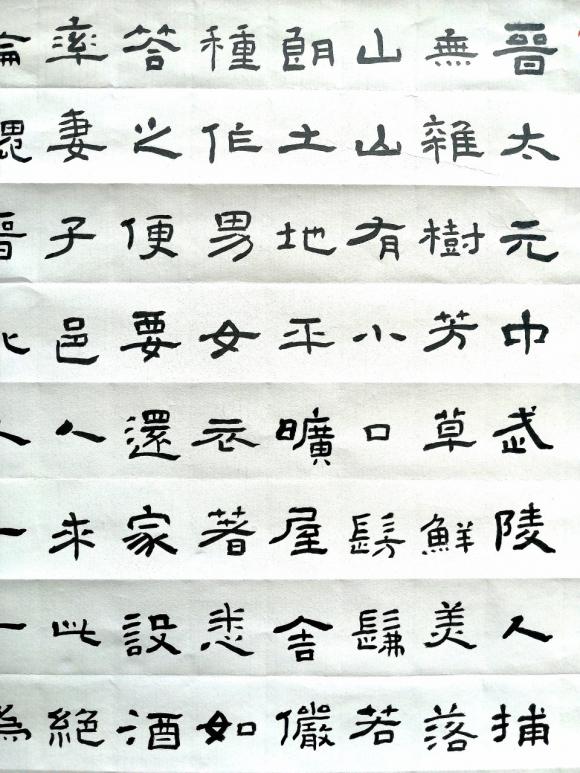 晉太元中武陵人捕
無雜樹芳草鮮美落
山山有小口髣髴若
朗土地平曠屋舍儼
種作男女衣著悉如
答之便要還家設酒
率妻子邑人來此絕
論魏晉此人一一為